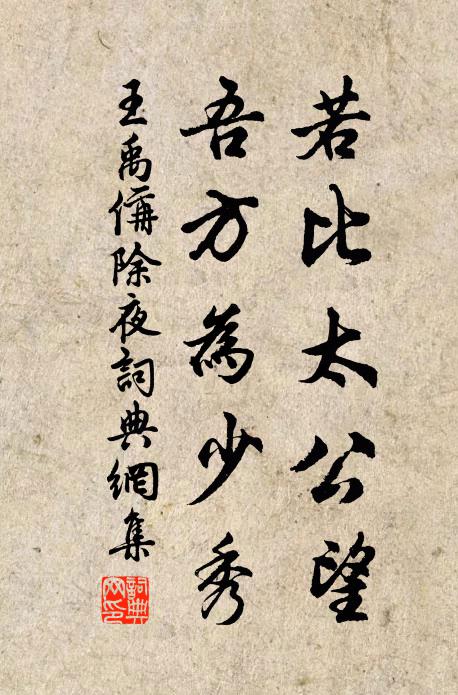 若比太公望
吾方為少秀
王禹偁除夜詞典網集
詞典網印